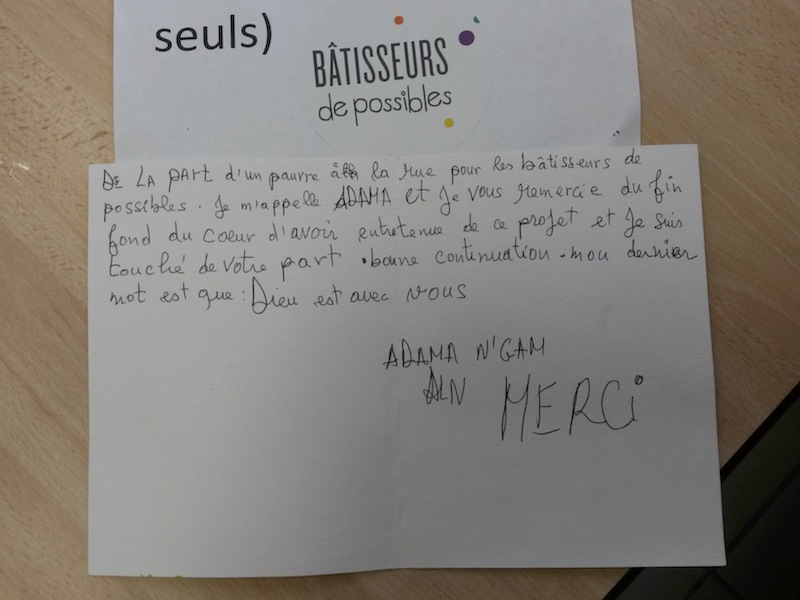 seuls)
BÂTISSEURS
de possibles
DE LA PART d'un pauvre à la rue pour les bâtisseurs de
possibles. Je m'appelle ADAMA et Je vous remercie du fin
fond du coeur d'avoir entretenue de ce projet et Je suis
touché de votre part . bonne continuation . mon dernier
mot est que : Dieu est avec vous
ADAMA N'GAM
ALN MERCi